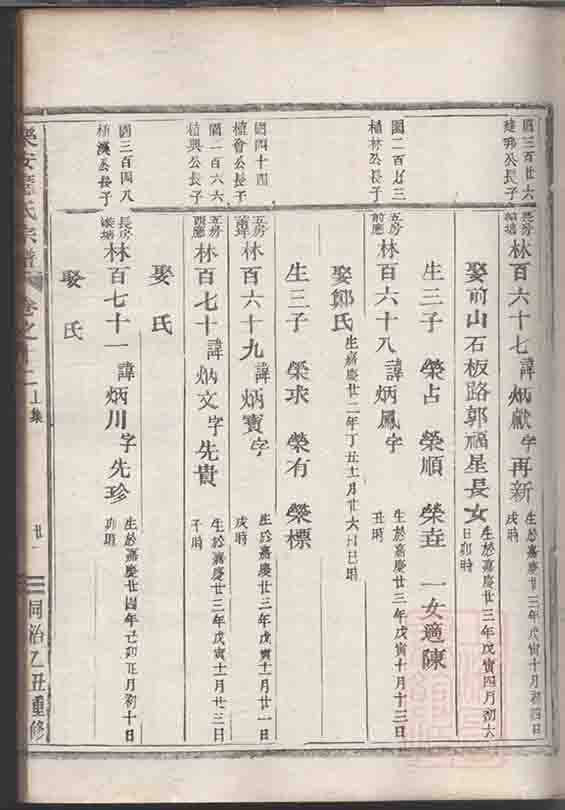 國三百廿六
長子
長房
林百六十七 諱炳獻 字再新
生於嘉慶廿三年戊寅十月初四日
戌時
娶前山石板路郭福星長女
生於嘉慶廿三年戊寅四月初六
日卯時
生三子 榮占 榮順 榮垚 一女適陳
國二百廿三
植林公長子
五房
前應
林百六十八 諱炳鳳 字
生於嘉慶廿三年戊寅十月十三日
丑時
娶鄒氏
生嘉慶廿二年丁丑十一月廿六日巳時
生三子 榮求 榮有 榮標
國四十四
植會公長子
五房
林百六十九 諱炳寶 字
生於嘉慶廿三年戊寅十一月廿一日
戌時
國一百六六
植興公長子
五房
西應
林百七十 諱炳文 字先貴
生於嘉慶廿三年戊寅十一月廿三日
子時
娶 氏
國三百四八
植漢公長子
長房
林百七十一 諱炳川 字先珍
生於嘉慶廿四年己卯正月初十日
卯時
娶 氏
樂安 氏宗譜 卷之 二上集
廿一
同治乙丑重修